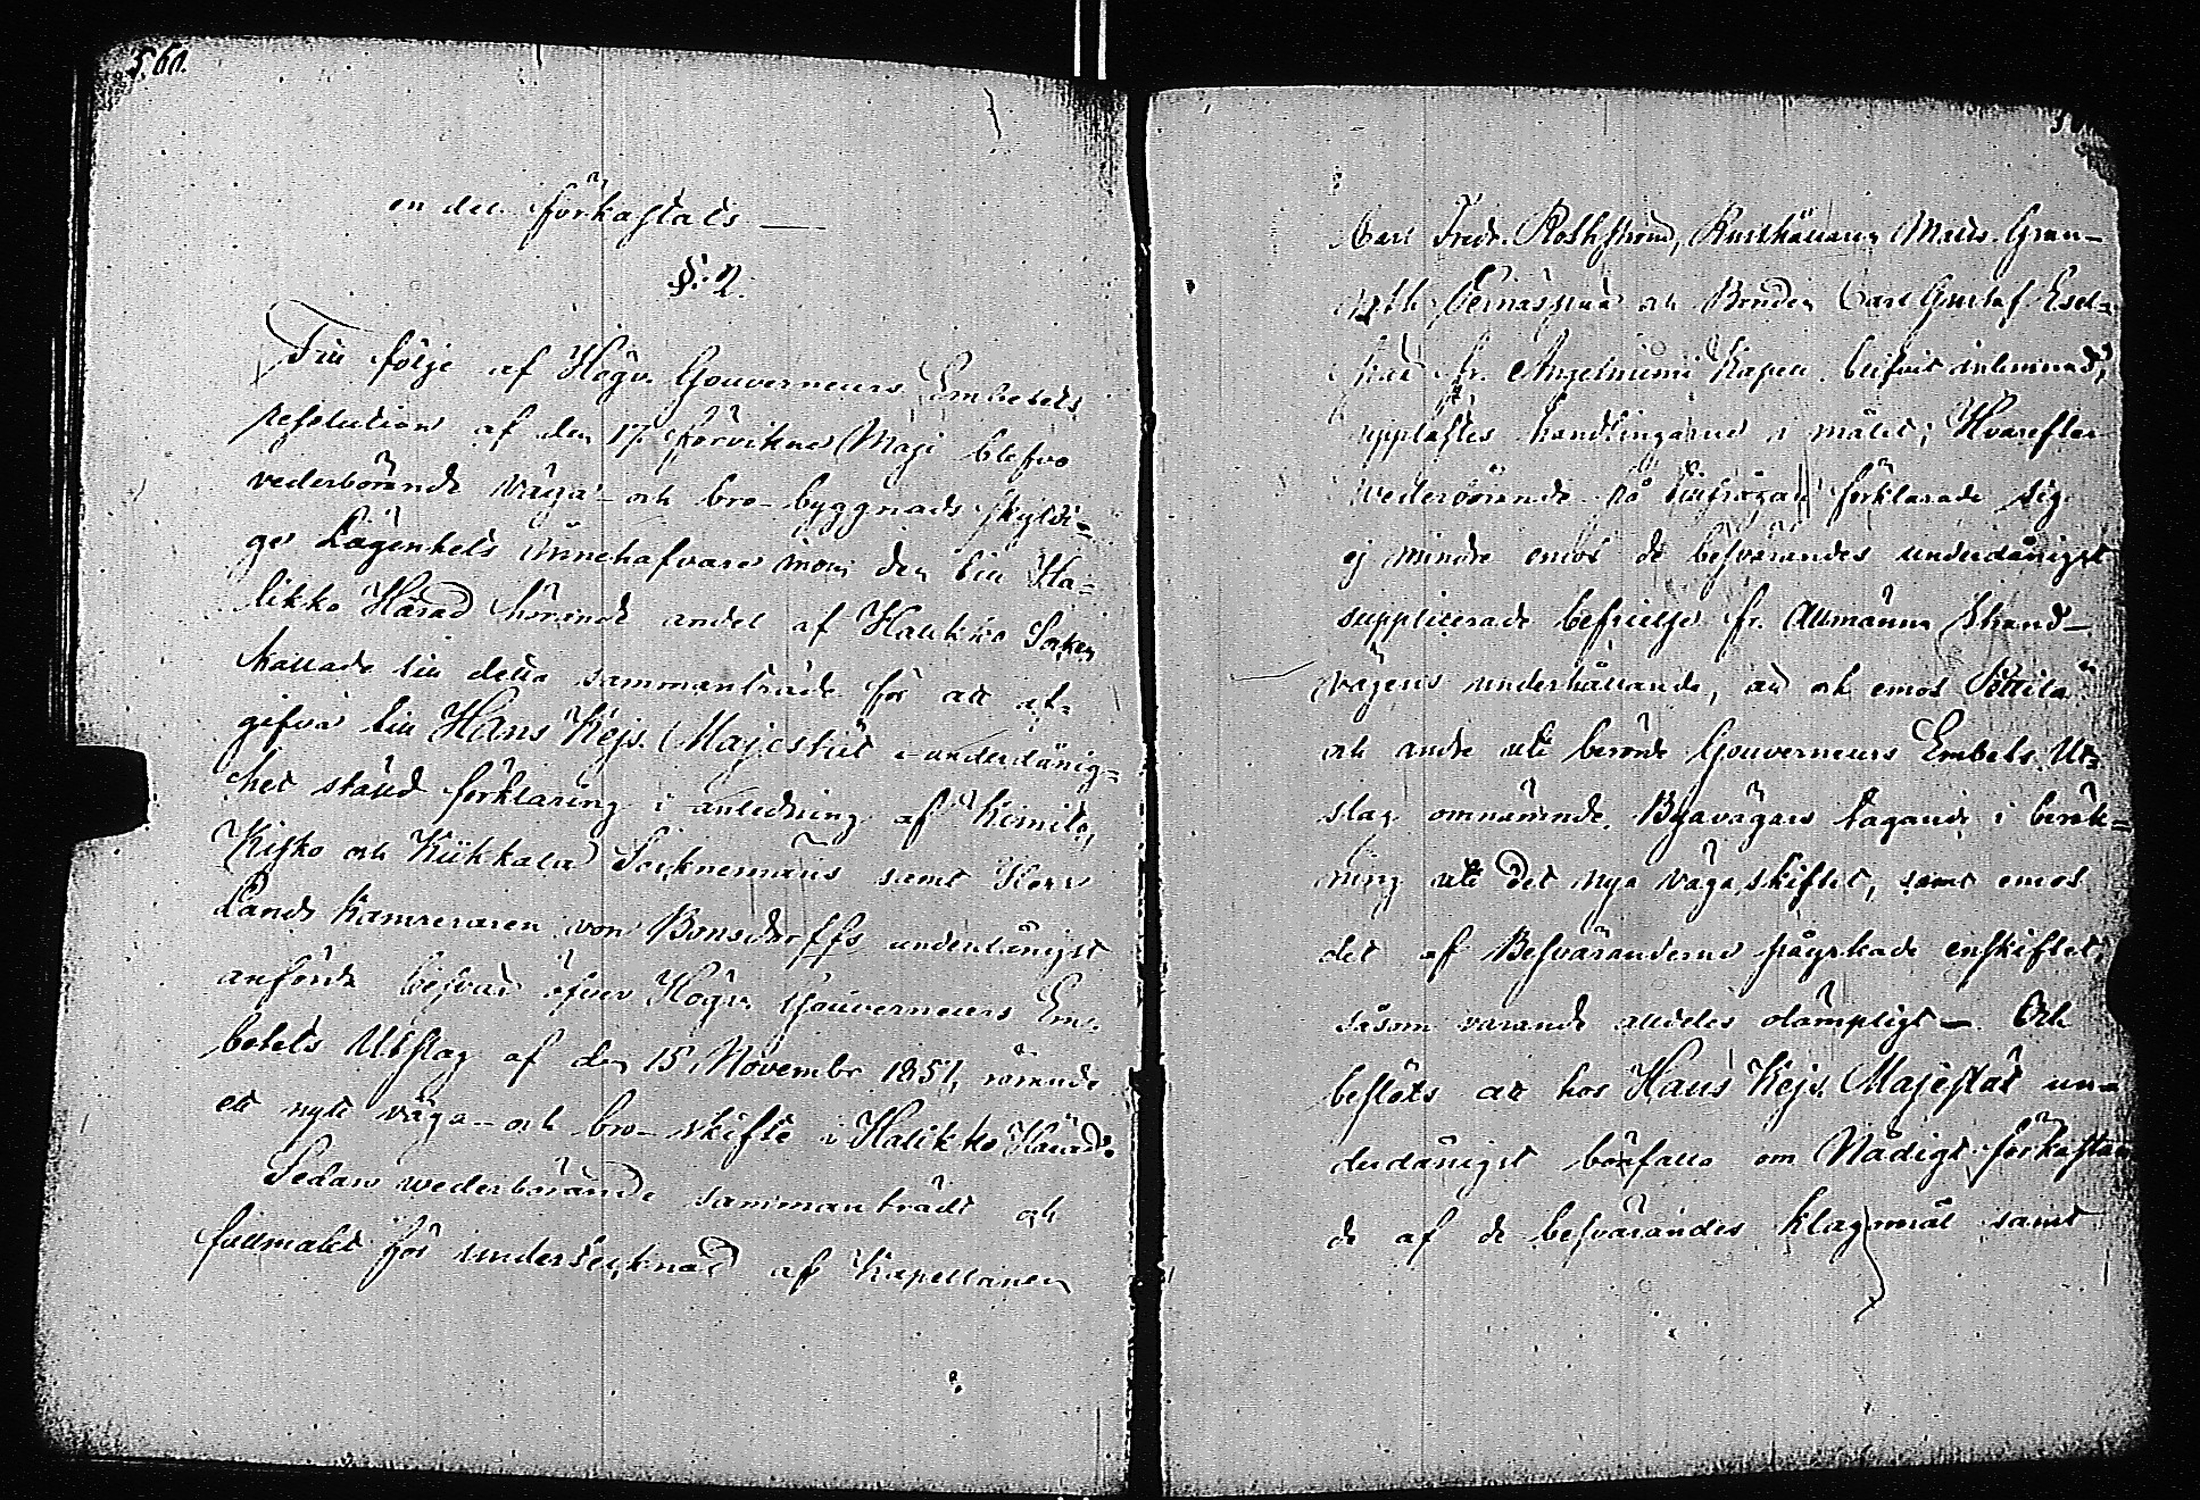 560.
en del förkastats —
§. 2.
Till följe af Högv. Gouverneurs Embetets
resolution af den 17 förvikne Maji blefvo
vederbörande väga- och bro-byggnads skyldi=
ge Lägenhets innehafvare inom den till Ha=
likko Härad hörande andel af Halikko Socken
kallade till detta sammanträde för att af=
gifva till Hans Kejs. Majestät i underdånig=
het ställd förklaring i anledning af Kimito,
Kisko och Kiikkala Socknemäns samt Herr
Lands Kamreraren von Bonsdorffs underdånigst
anförde besvär öfver Högv. Gouverneurs Em=
betets Utslag af den 15 November 1851, rörande
ett nytt väga- och bro-skifte i Halikko Härad.
Sedan wederbörande sammanträdt och
fullmakt för undertecknad af Kapellanen
Carl Fredr. Rothstrand, Rusthållaren Matts Gran-
och Bonden Carl Gustaf Esel=
fr. Angelniemi Kapell blifvit inlemnad,
upplästes handlingarne i målet; Hvarefter
wederbörande på tillfrågan förklarade sig
ej mindre emot de besvärandes underdånigst
supplicerade befrielse fr. Allmänna Strand-
vägens underhållande, än ock emot Pöttilä
och andre uti berörde Gouverneurs Embets Ut=
slag omnämnde Byavägars tagande i beräk=
ning uti det nya vägaskiftet, samt emot
det af Besväranderne påyrkade enskiftet,
såsom varande alldeles olämpligt —. Och
beslöts att hos Hans Kejs. Majestät un=
derdånigst bönfalla om Nådigt förkastan
de af de besvärandes klagomål samt